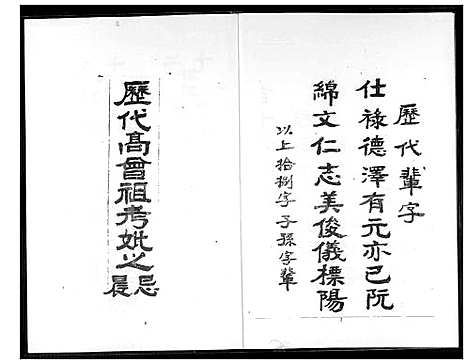 歷代輩字
仕祿德澤有元亦已阮
綿文仁志美俊儀標陽
以上拾捌字子孫字輩
歷代高曾祖考妣之忌晨